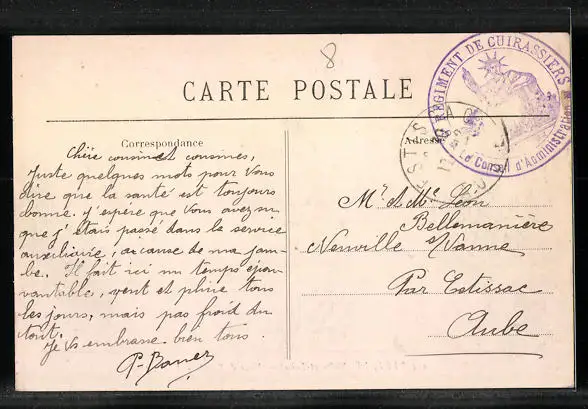 8
RÉGIMENT DE CUIRASSIERS
Le Conseil d'Administration
CARTE POSTALE
Correspondance
Adresse
Chère cousine et cousines,
Juste quelques mots pour vous
dire que la santé est toujours
bonne. j'espère que vous avez su
que j'étais passé dans le service
auxiliaire, à cause de ma jam-
be. Il fait ici un temps épou-
vantable, vent et pluie tous
les jours, mais pas froid du
tout.
Je vs embrasse bien tous.
Mr et Me Léon
Bellemanière
Neuville s/Vanne
Par Estissac
Aube